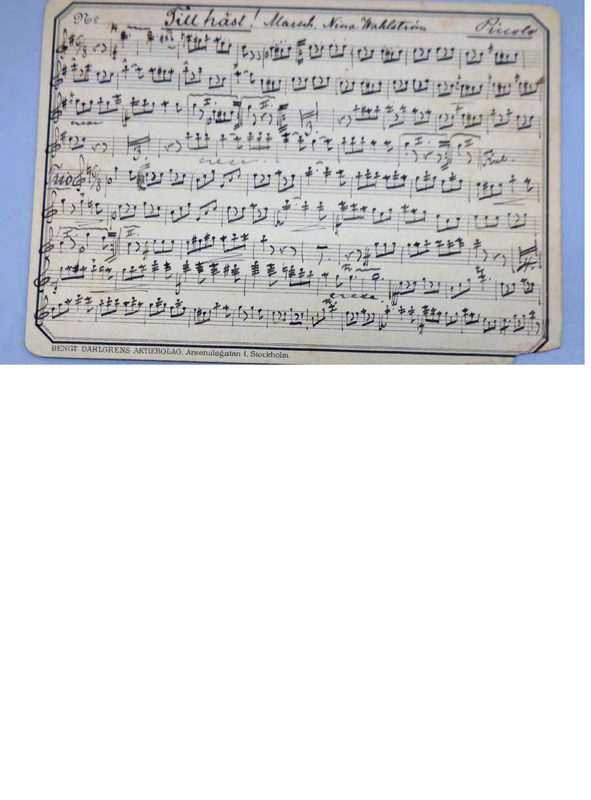 No Till häst! Marsch. Nina Wahlström Piccolo
I. II.
cresc. 3
3 I. II.
cresc. Trio.
Trio
I. II.
cresc.
BENGT DAHLGRENS AKTIEBOLAG, Arsenalsgatan 1, Stockholm.